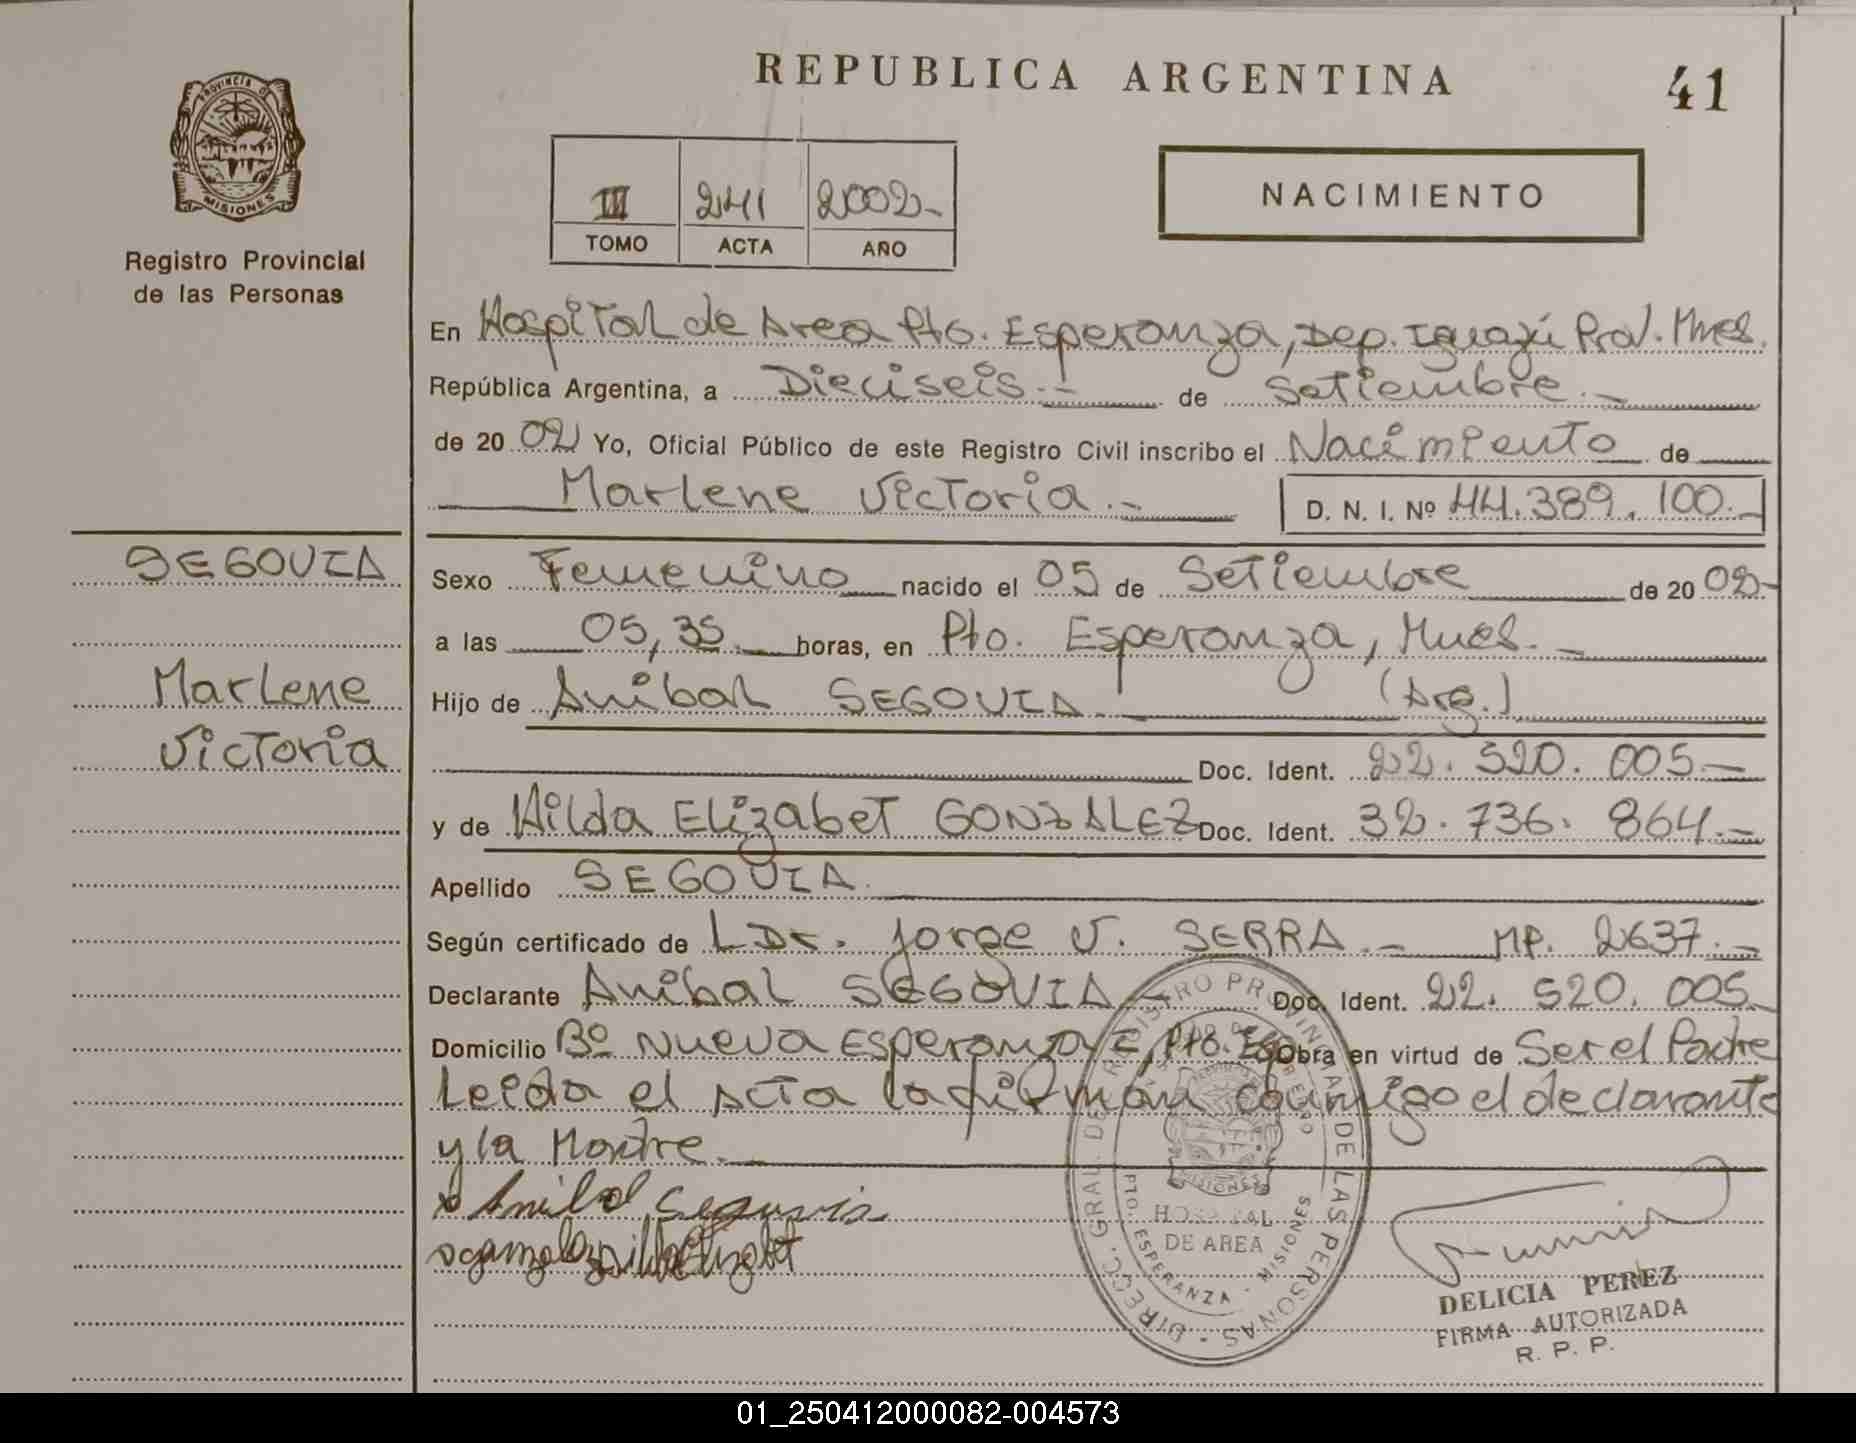 REPUBLICA ARGENTINA
41
PROVINCIA DE
MISIONES
Registro Provincial
de las Personas
III 241 2002-
TOMO ACTA AÑO
NACIMIENTO
En Hospital de Area Pto. Esperanza, Dep. Iguazú Prov. Mnes.
República Argentina, a Dieciseis.- de Setiembre.-
de 20 02 Yo, Oficial Público de este Registro Civil inscribo el Nacimiento de
Marlene Victoria.- D. N. I. Nº 44.389.100.-
SEGOVIA
Marlene
Victoria
Sexo Femenino nacido el 05 de Setiembre de 20 02-
a las 05,35 horas, en Pto. Esperanza, Mnes.-
Hijo de Anibal SEGOVIA (Arg.)
Doc. Ident. 22.520.005.-
y de Hilda Elizabet GONZALEZ Doc. Ident. 32.736.864.-
Apellido SEGOVIA.
Según certificado de Dr. Jorge V. SERRA.- MP. 2637.-
Declarante Anibal SEGOVIA- Doc. Ident. 22.520.005.
Domicilio Bº Nueva Esperanza I, Pto. Esp. Obra en virtud de Ser el Padre
Leida el Acta la firman conmigo el declarante
y la Madre.
Anibal Segovia
gonzalez ilda Elizabet
DIRECC. GRAL. DE REGISTRO PROVINCIAL DE LAS PERSONAS
MISIONES
HOSPITAL
DE AREA
PTO. ESPERANZA - MISIONES
DELICIA PEREZ
FIRMA AUTORIZADA
R. P. P.
01_250412000082-004573